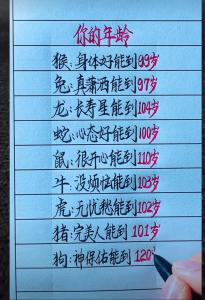 你的年龄
猴:身体好能到99岁
兔:真潇洒能到97岁
龙:长寿星能到104岁
蛇:心态好能到100岁
鼠:很开心能到110岁
牛:没烦恼能到103岁
虎:无忧愁能到102岁
猪:完美人能到101岁
狗:神保佑能到120岁